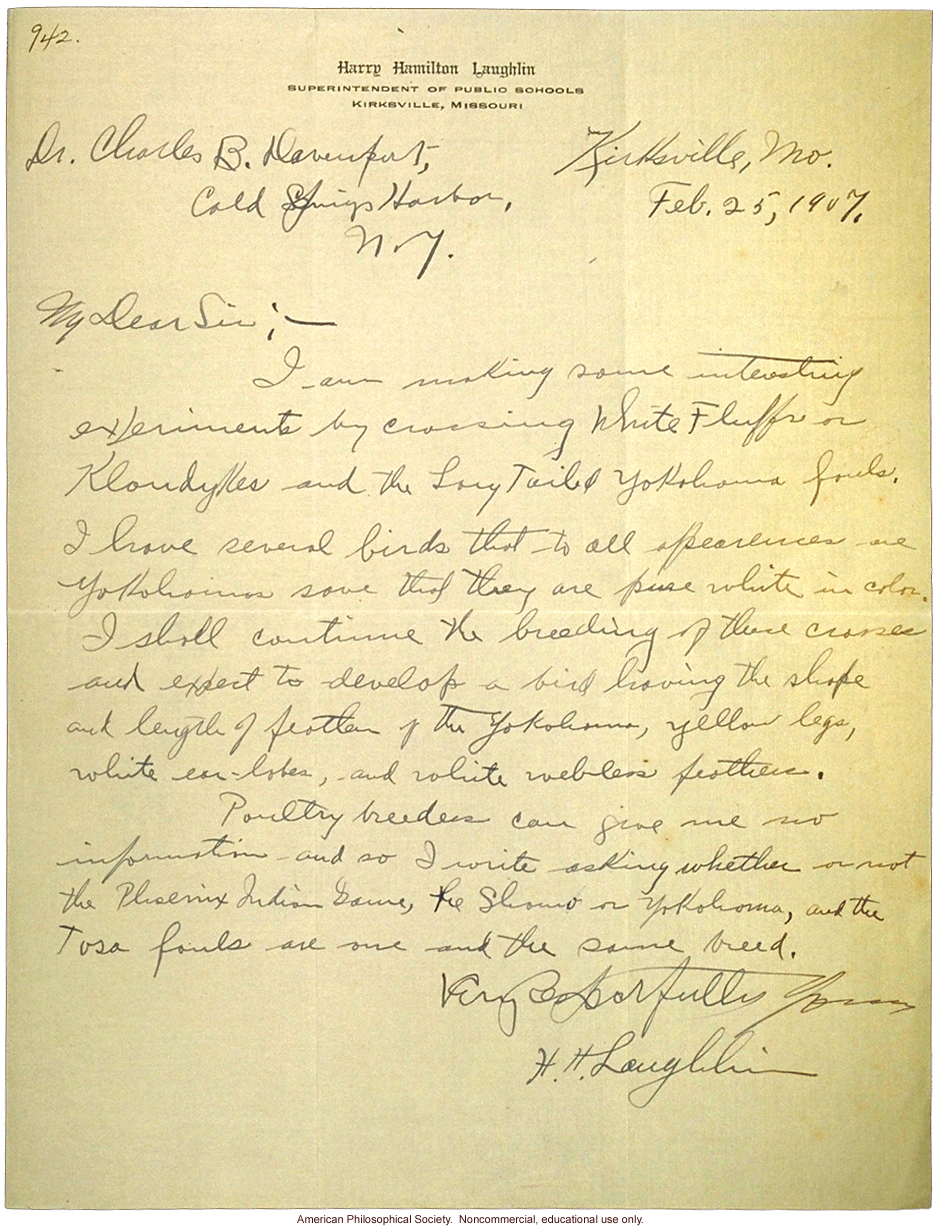 942.
Harry Hamilton Laughlin
SUPERINTENDENT OF PUBLIC SCHOOLS
KIRKSVILLE, MISSOURI
Dr. Charles B. Davenport,
Kirksville, Mo.
Cold Springs Harbor,
Feb. 25, 1907.
N. Y.
My Dear Sir; —
I am making some interesting
experiments by crossing White Fluffs or
Klondykes and the Long Tailed Yokohama fouls.
I have several birds that to all apearences are
Yokohamas save that they are pure white in color.
I shall continue the breeding of these crosses
and expect to develop a bird having the shape
and length of feather of the Yokohama, yellow legs,
white ear-lobes, and white webless feathers.
Poultry breeders can give me no
information and so I write asking whether or not
the Phoenix Indian Game, the or Yokohama, and the
Tosa fouls are one and the same breed.
Very Respectfully Yours
H. H. Laughlin
American Philosophical Society. Noncommercial, educational use only.